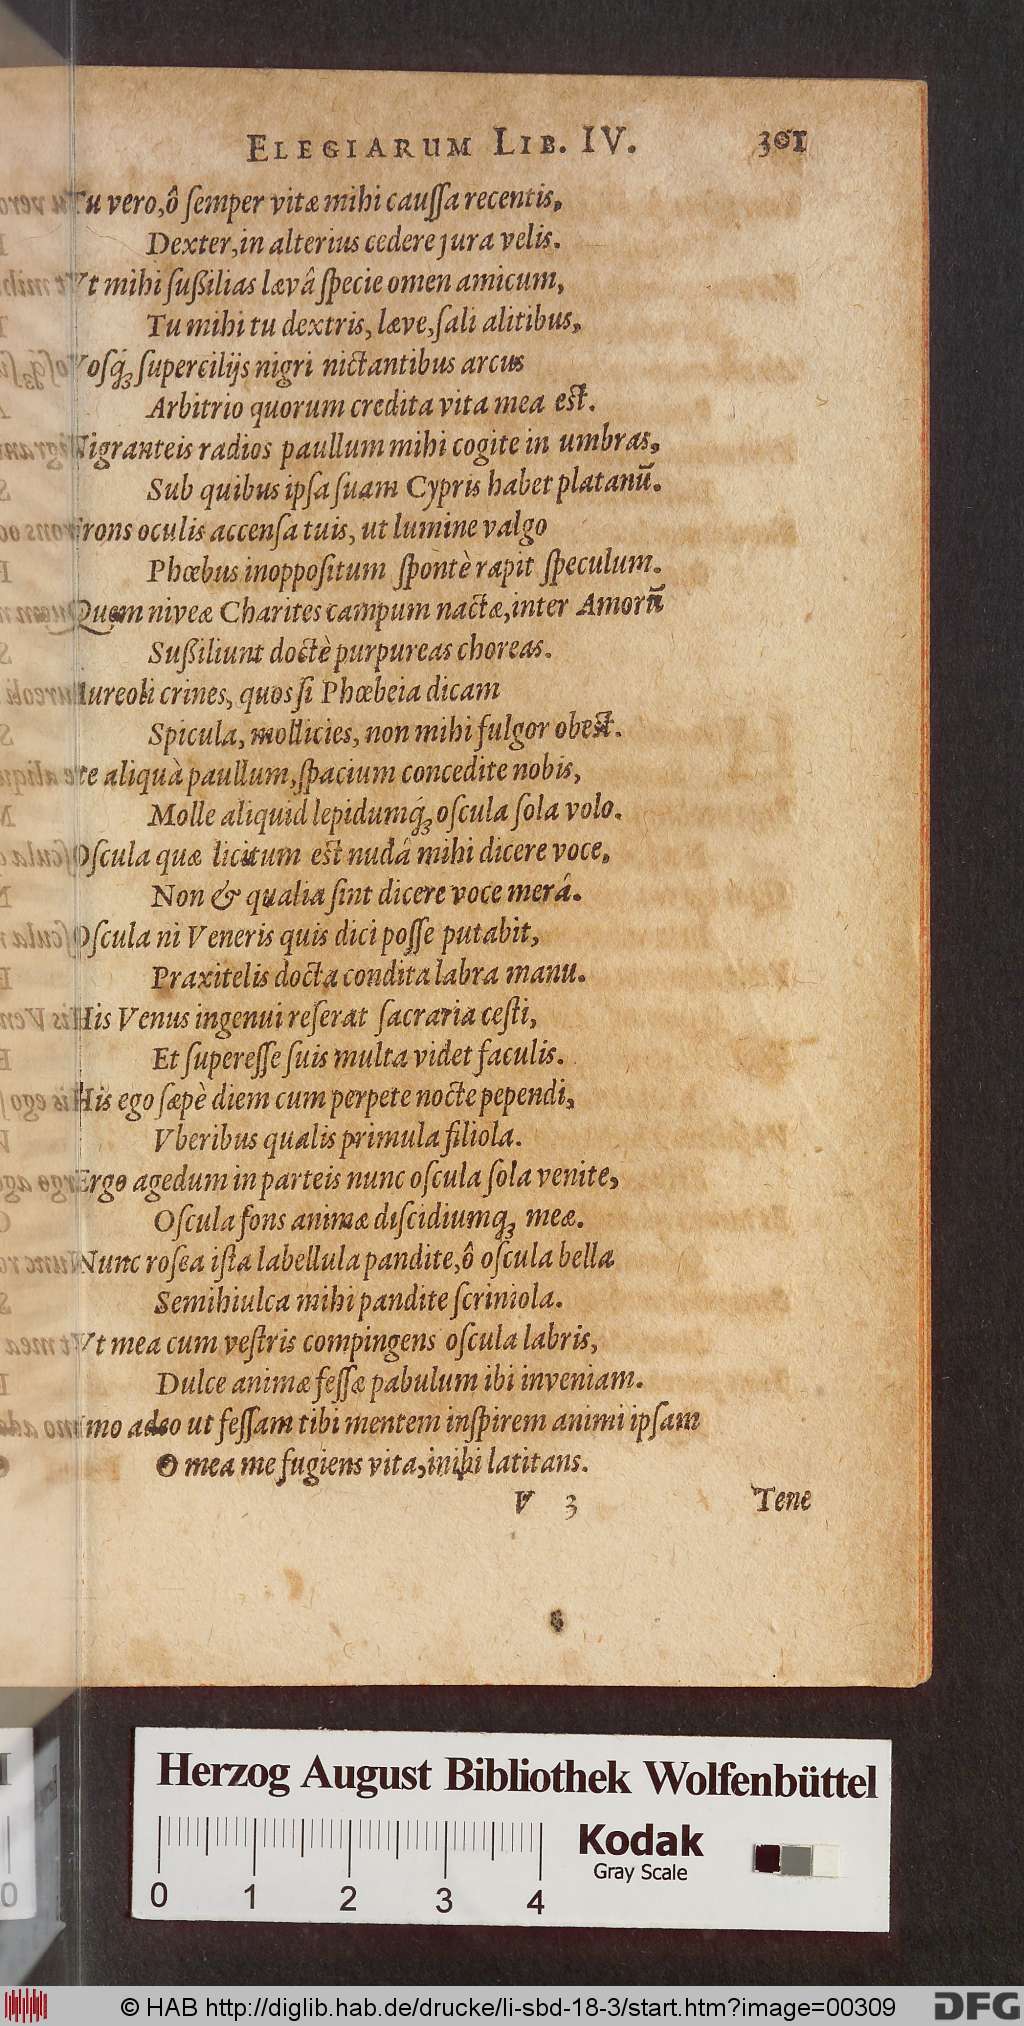 ELEGIARUM LIB. IV. 301
Tu vero, ô ſemper vitæ mihi cauſſa recentis,
Dexter, in alterius cedere jura velis.
Vt mihi ſußilias lævâ ſpecie omen amicum,
Tu mihi tu dextris, læve, ſali alitibus,
Voſq́ꝫ ſupercilijs nigri nictantibus arcus
Arbitrio quorum credita vita mea est.
Nigranteis radios paullum mihi cogite in umbras,
Sub quibus ipſa ſuam Cypris habet platanũ.
Frons oculis accenſa tuis, ut lumine valgo
Phœbus inoppoſitum ſpontè rapit ſpeculum.
Quem niveæ Charites campum nactæ, inter Amorũ
Sußiliunt doctè purpureas choreas.
Aureoli crines, quos ſi Phœbeia dicam
Spicula, mollicies, non mihi fulgor obest.
te aliquà paullum, ſpacium concedite nobis,
Molle aliquid lepidumq́ꝫ oſcula ſola volo.
Oſcula quæ licitum est nudâ mihi dicere voce,
Non & qualia ſint dicere voce merâ.
Oſcula ni Veneris quis dici poſſe putabit,
Praxitelis docta condita labra manu.
His Venus ingenui reſerat ſacraria ceſti,
Et ſupereſſe ſuis multa videt faculis.
His ego ſæpè diem cum perpete nocte pependi,
Vberibus qualis primula filiola.
Ergo agedum in parteis nunc oſcula ſola venite,
Oſcula fons animæ diſcidiumqꝫ meæ.
Nunc roſea iſta labellula pandite, ô oſcula bella
Semihiulca mihi pandite ſcriniola.
Vt mea cum veſtris compingens oſcula labris,
Dulce animæ feſſæ pabulum ibi inveniam.
Imo adeo ut feſſam tibi mentem inſpirem animi ipſam
O mea me fugiens vita, inihi latitans.
V 3 Tene
Herzog August Bibliothek Wolfenbüttel
Kodak
Gray Scale
0 1 2 3 4
© HAB http://diglib.hab.de/drucke/li-sbd-18-3/start.htm?image=00309
DFG